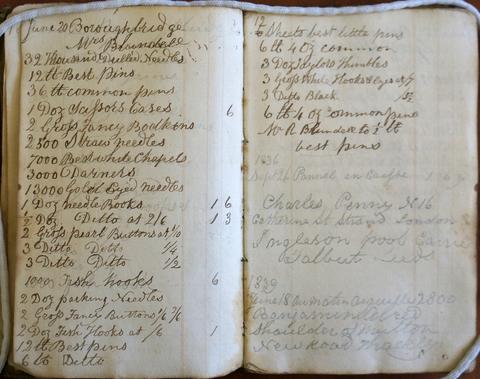 June 20 Boroughbridge
Mrs
32 Thousand Drilled Needles
12 lb Best Pins
36 lb common pins
1 Doz Scissors Cases 6
2 Groſs Fancy Bodkins
2500 Straw needles
7000 Best white Chapels
3000 Darners
13000 Gold Eyed needles
1 Doz needle Books 1 6
½ Doz Ditto at 2/6 1 3
2 Groſs pearl Buttons at 1/10
3 Ditto Ditto 1/4
3 Ditto Ditto 1/2
1000 Fish hooks 6
2 Doz packing Needles
2 Groſs Fancy Buttons
2 Doz Fish Hooks at /6 1
12 lb Best pins
6 lb Ditto
12
6 Sheets best little pins
6 lb 4 oz common
3 Doz Taylors Thimbles
3 Groſs White Hooks & Eyes at /7
3 Ditto Black
6 lb 4 of common pins
Mr R Blunder to 1 lb
best pins
1836
Sept 26 Pannel
Charles Penny N 16
Catherine St Strand London
Ingleson pool
Talbert Leeds
1839
June 18 2800
Benjamin
Shoulder of Mutton
New Road